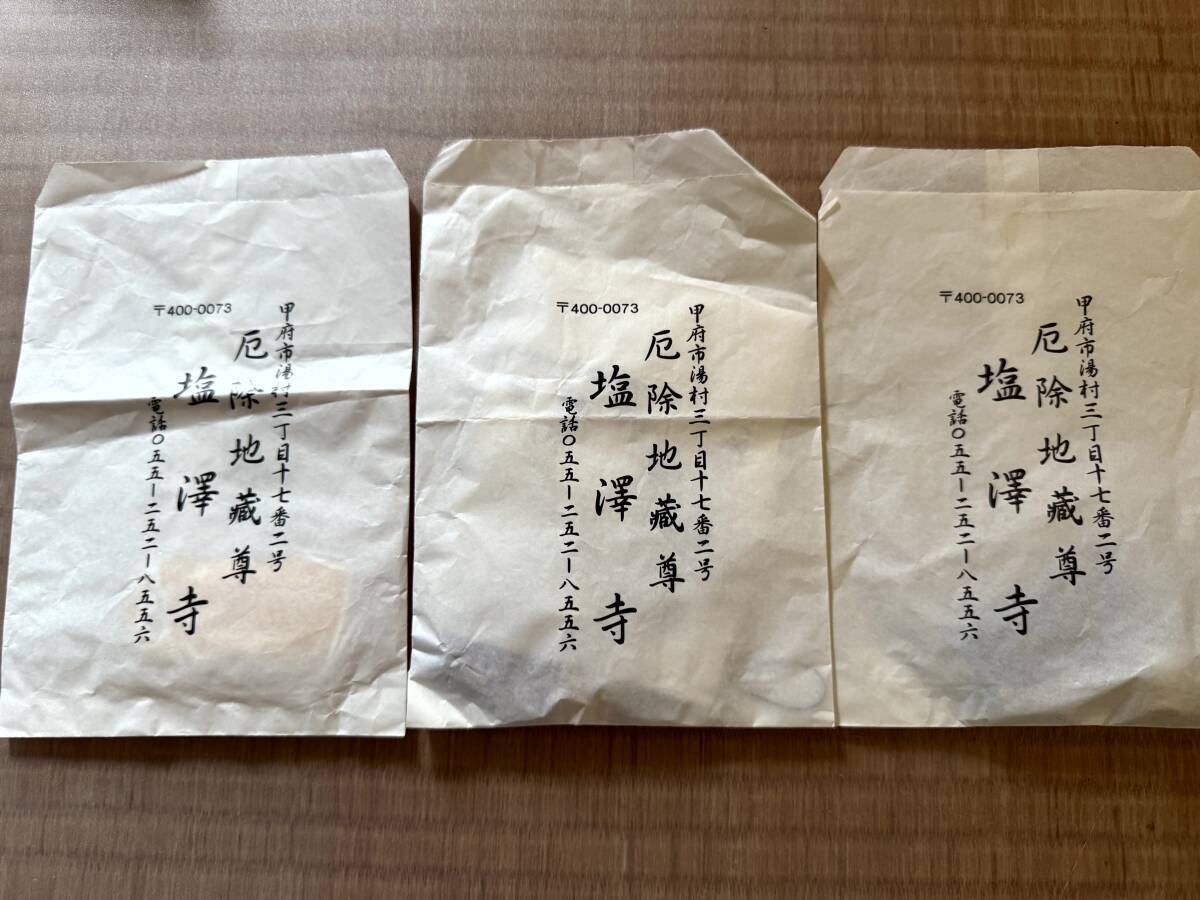 〒400-0073
甲府市湯村三丁目十七番二号
厄除地藏尊
塩澤寺
電話〇五五ー二五二ー八五五六
〒400-0073
甲府市湯村三丁目十七番二号
厄除地藏尊
塩澤寺
電話〇五五ー二五二ー八五五六
〒400-0073
甲府市湯村三丁目十七番二号
厄除地藏尊
塩澤寺
電話〇五五ー二五二ー八五五六